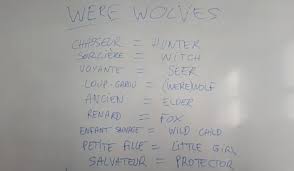 WERE WOLVES
CHASSEUR = HUNTER
SORCIÈRE = WITCH
VOYANTE = SEER
LOUP-GAROU = WEREWOLF
ANCIEN = ELDER
RENARD = FOX
ENFANT SAUVAGE = WILD CHILD
PETITE FILLE = LITTLE GIRL
SALVATEUR = PROTECTOR